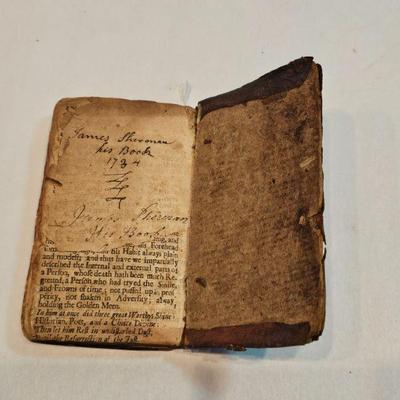 James Sherman
his Book
1734
James Sherman
His Book
ing, and
his Forehead
his Habit always plain
and modest; and thus have we impartially
described the Internal and external parts of
a Person, whose death hath been much Re
ground, a Person who had tryed the Smile,
and Frowns of time; not puffed up in pros
perity, nor shaken in Adversity; alway
holding the Golden Mean.
In him at once did three great Worthys Shine
Historian, Poet, and a Choice Divine:
Then let him Rest in undisturbed Dust,
Until the Resurrection of the Just.